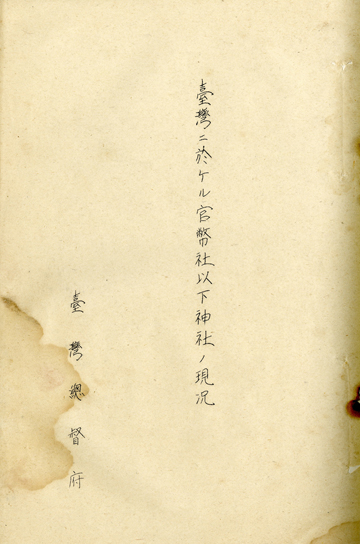 臺灣ニ於ケル官幣社以下神社ノ現況
臺灣總督府